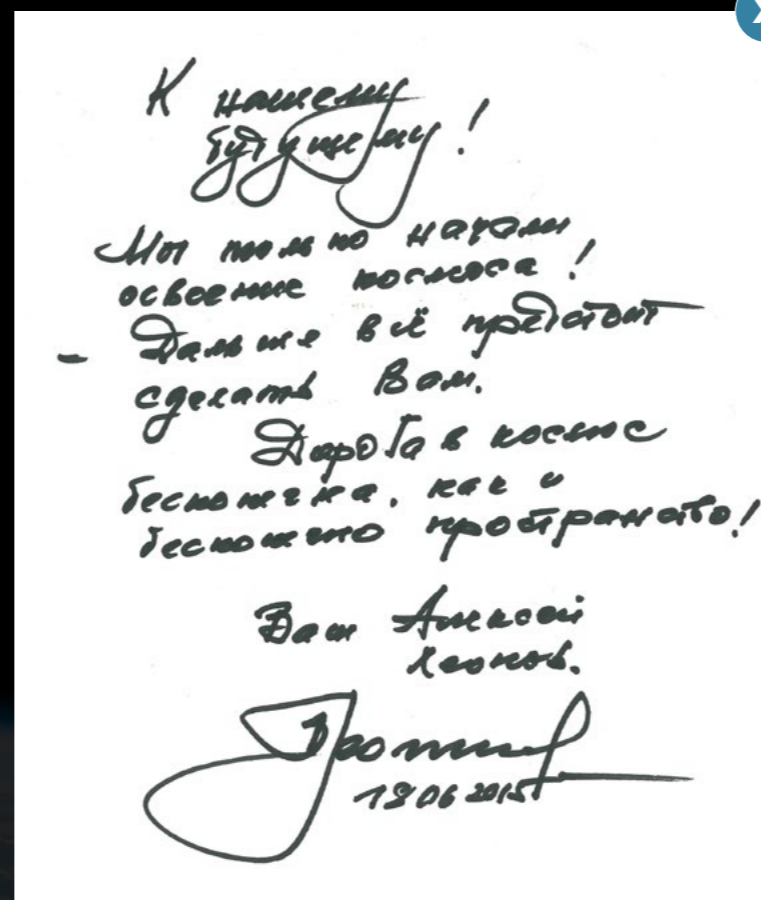 К нашему
будущему!
Мы только начали
освоение космоса!
- Дальше всё предстоит
сделать Вам.
Дорога в космос
бесконечна, как и
бесконечно пространство!
Ваш Алексей
Леонов.
Леонов
19 06 2015